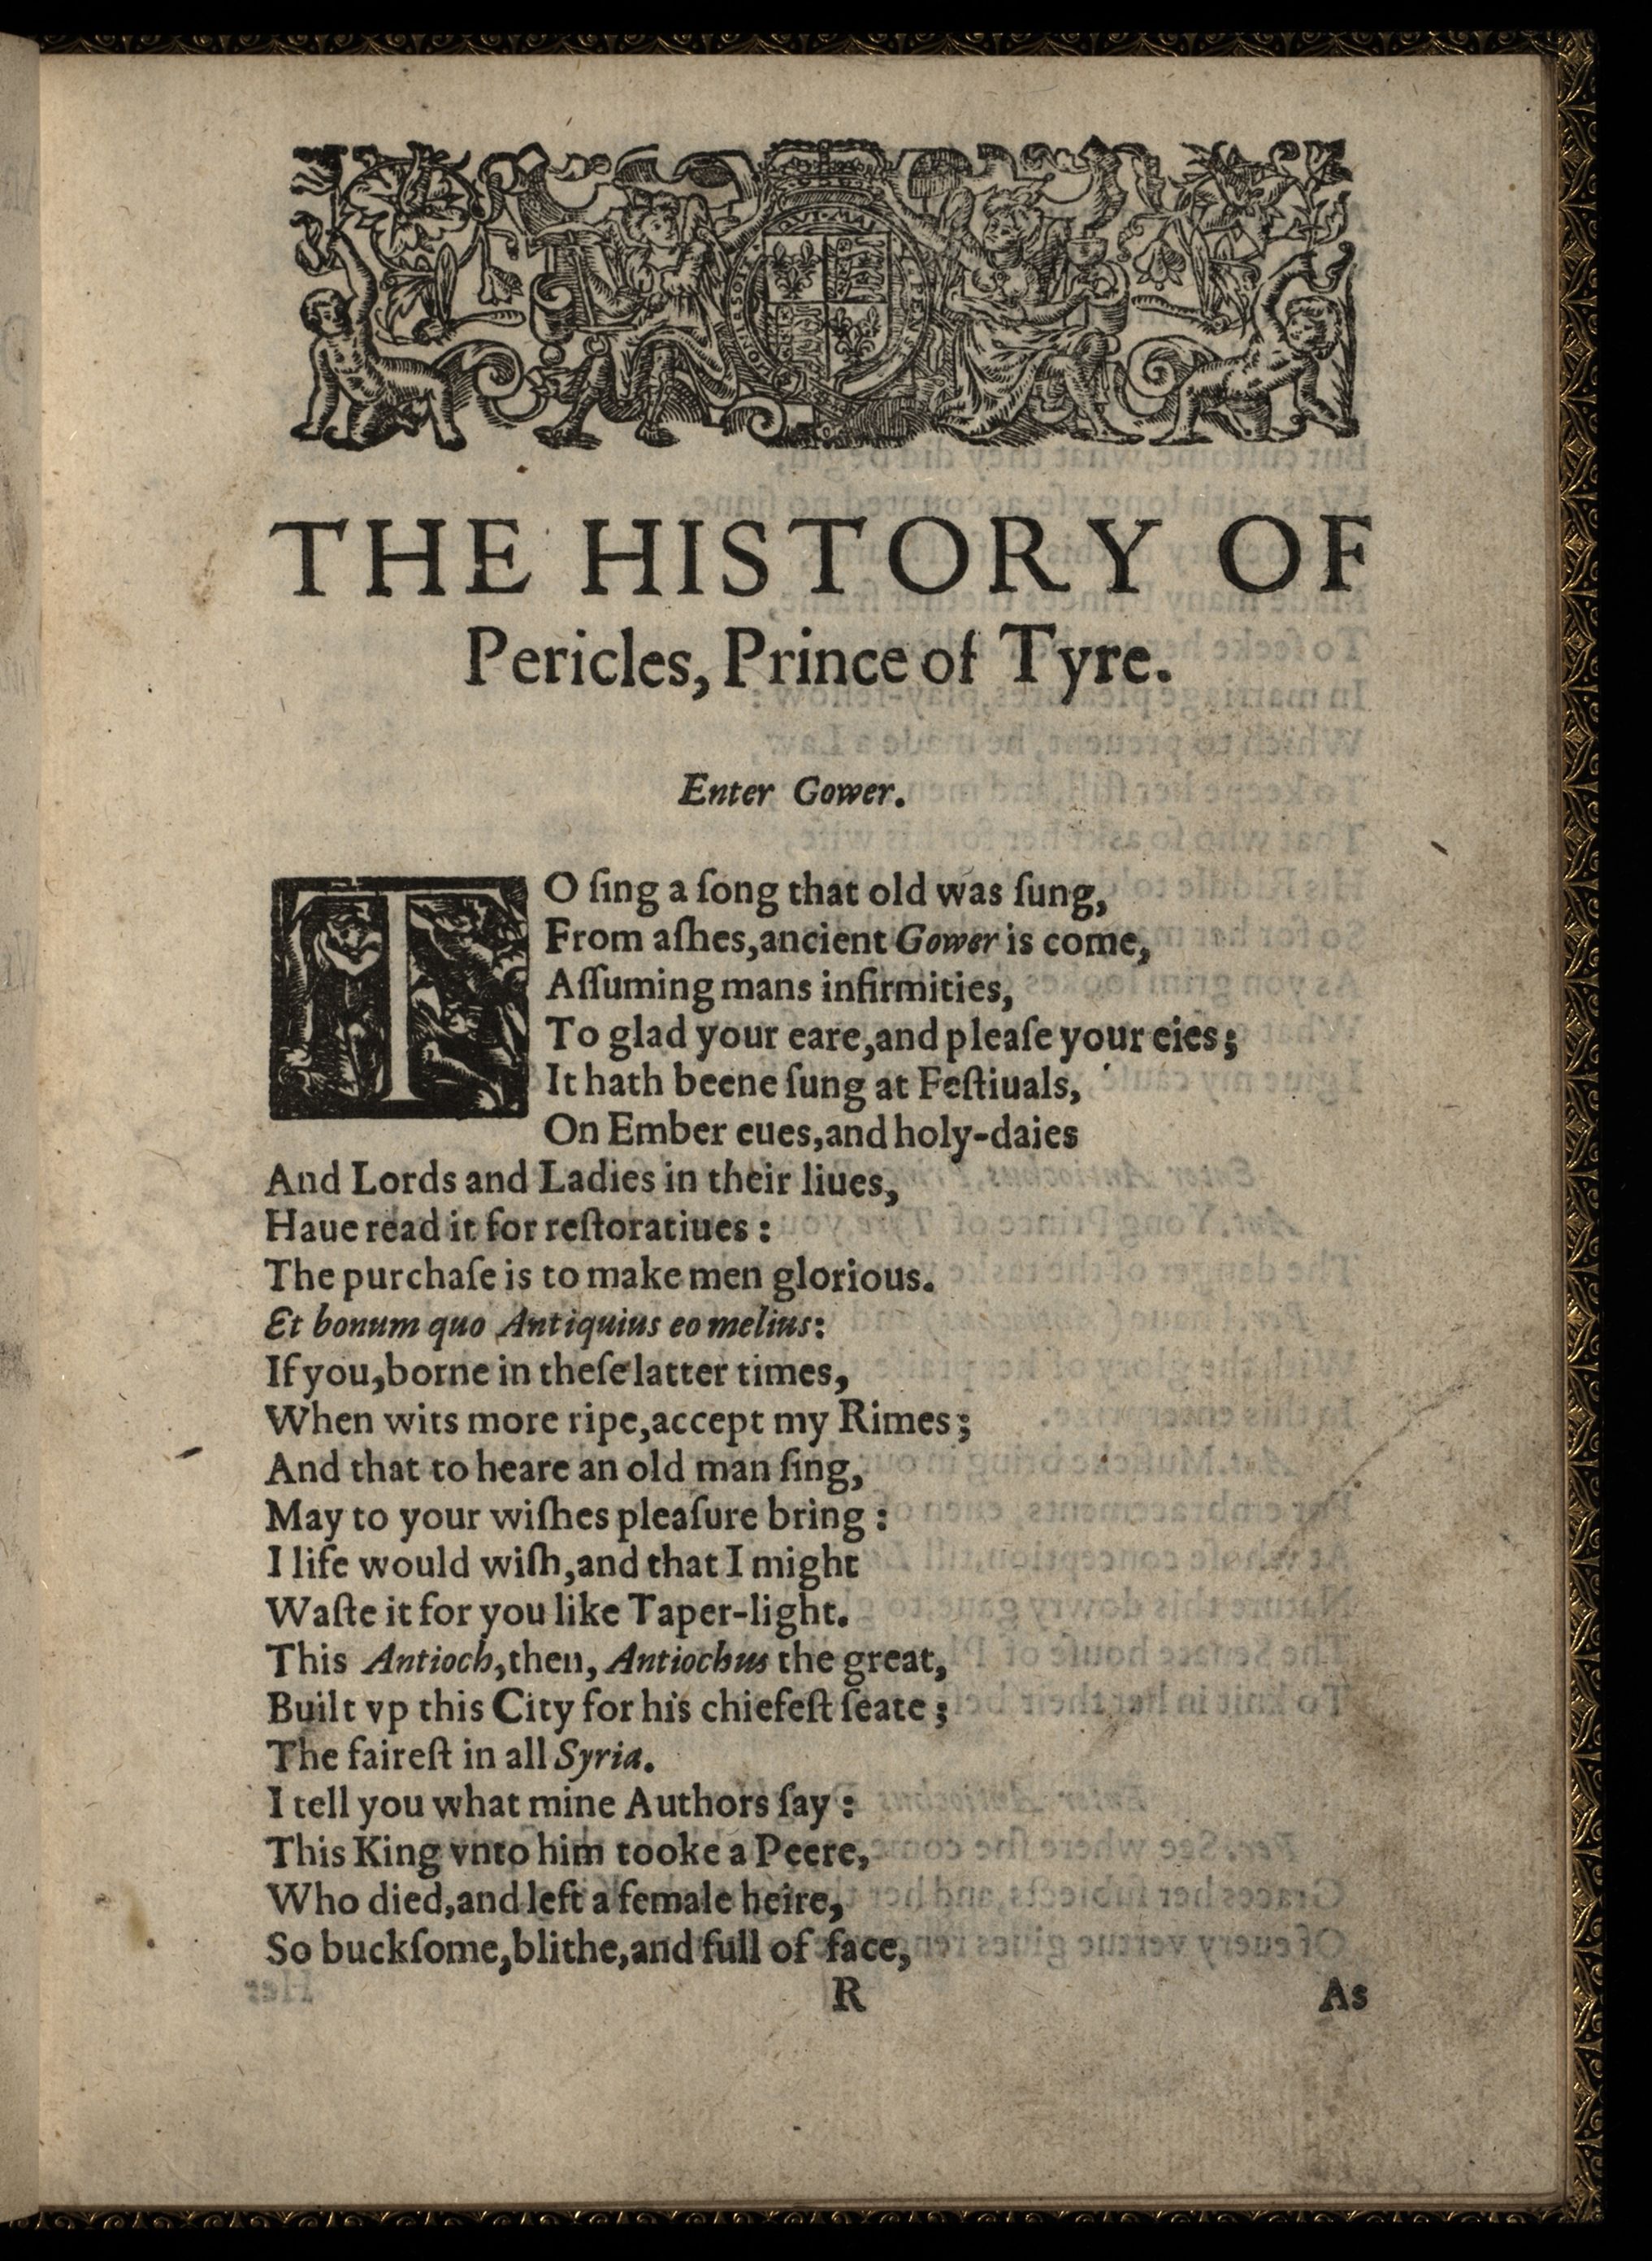 THE HISTORY OF
Pericles, Prince of Tyre.
Enter Gower.
TO ſing a ſong that old was ſung,
From aſhes,ancient Gower is come,
Aſſuming mans infirmities,
To glad your eare,and pleaſe your eies;
It hath beene ſung at Feſtiuals,
On Ember eues,and holy-daies
And Lords and Ladies in their liues,
Haue read it for reſtoratiues:
The purchaſe is to make men glorious.
Et bonum quo Antiquius eo melius:
If you,borne in theſe latter times,
When wits more ripe,accept my Rimes;
And that to heare an old man ſing,
May to your wiſhes pleaſure bring:
I life would wiſh,and that I might
Waſte it for you like Taper-light.
This Antioch,then, Antiochus the great,
Built vp this City for his chiefeſt ſeate;
The faireſt in all Syria.
I tell you what mine Authors ſay:
This King vnto him tooke a Peere,
Who died,and left a female heire,
So buckſome,blithe,and full of face,
R As